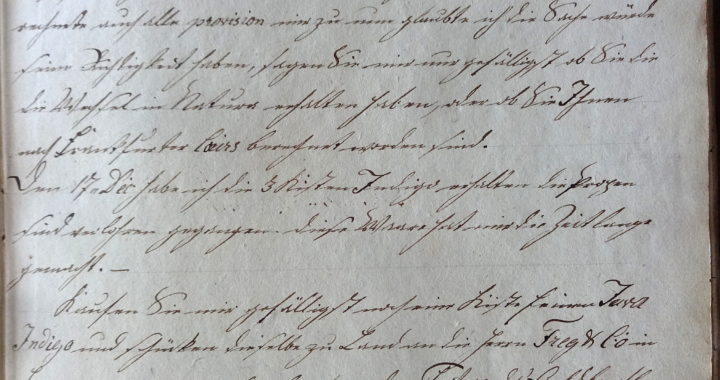 rechnete auch alle provision mir zu nun glaubte ich die Sache würde
seine Richtigkeit haben, sagen Sie mir nur gefälligst ob Sie die
die Wechsel in Natura erhalten haben, oder ob Sie Ihnen
nach Frankfurter Cours berechnet worden sind.
Den 17n Dec habe ich die 3 Kisten Indigo erhalten die Proben
sind verlohren gegangen. diese Waare hat mir die Zeit lange
gemacht. —
Kaufen Sie mir gefälligst noch eine Kiste feinen Java
Indigo und schicken dieselbe zu Land an die Herrn Freg & Co in